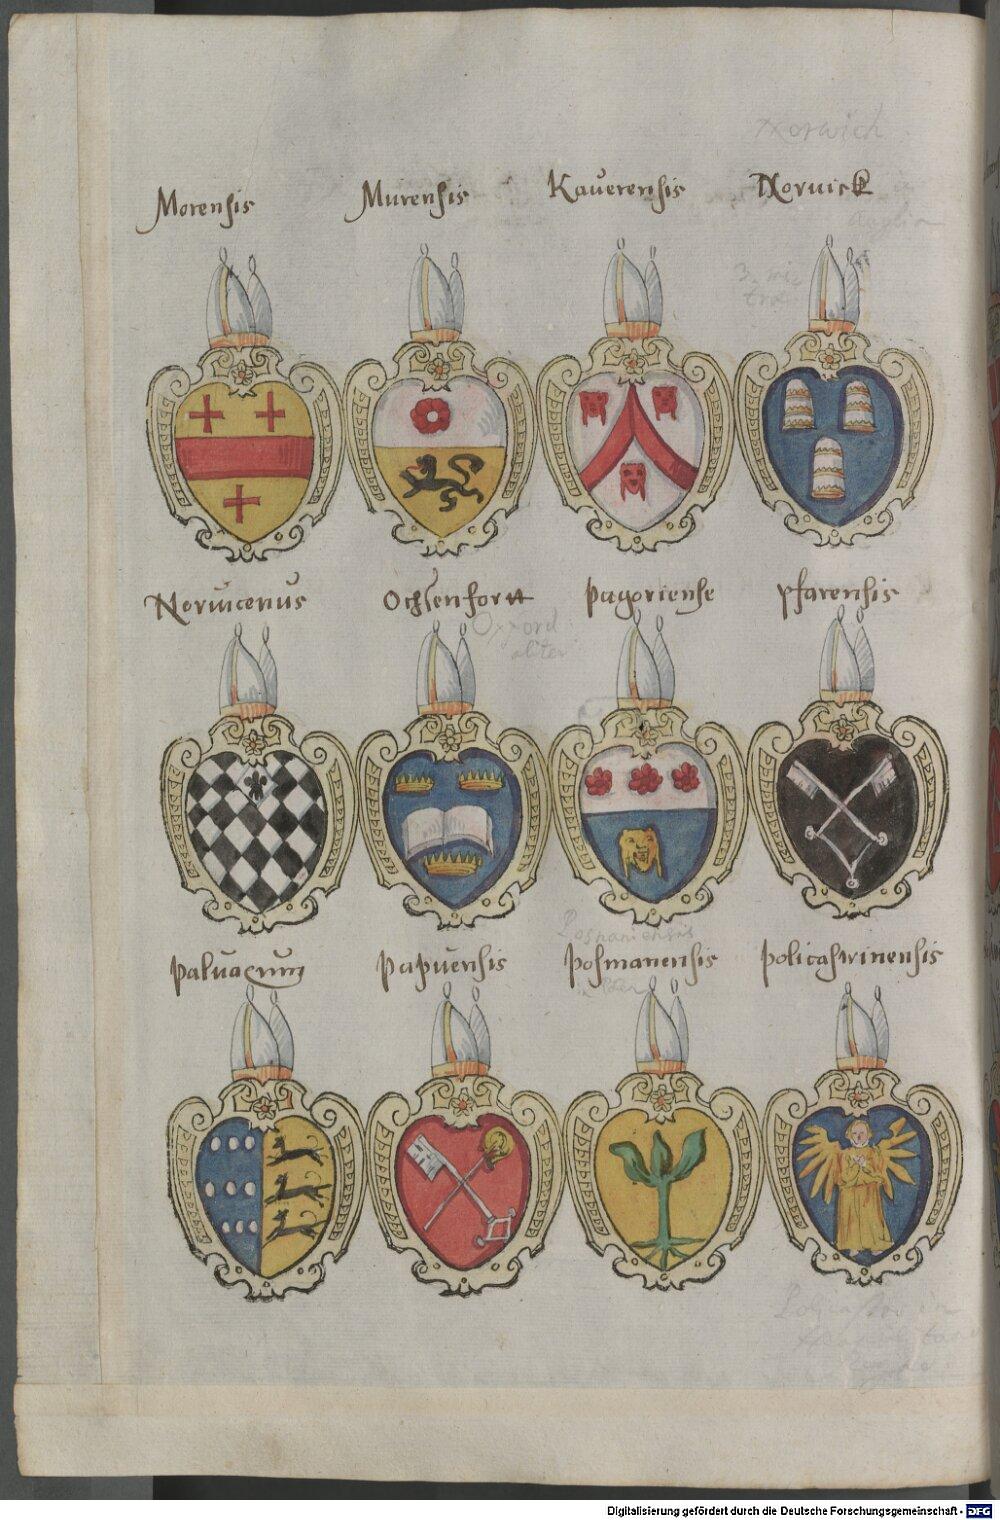 Norwich
Morensis
Murensis
Kaverensis
Norvick
Anglia
Norvicenus
Ochsenfortt
Oxford
aliter
Pagoriense
Pfarensis
Posnaniensis
Palvacrum
Papuensis
Posmanensis
Policastrinensis
Digitalisierung gefördert durch die Deutsche Forschungsgemeinschaft - DFG